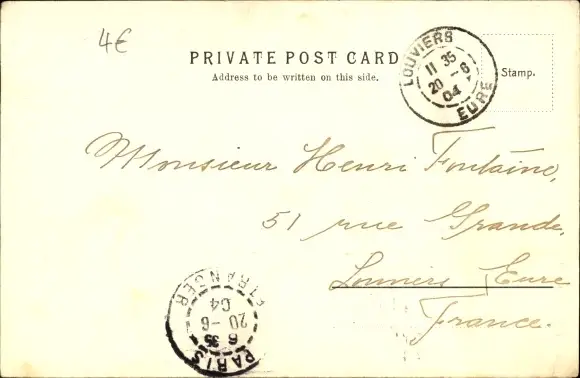 4€
PRIVATE POST CARD
Address to be written on this side.
Stamp.
LOUVIERS
11 35
20 - 6
04
EURE
Monsieur Henri Fontaine,
51 rue Grande,
Louviers Eure
France.
PARIS
6 35
20 - 6
04
ETRANGER